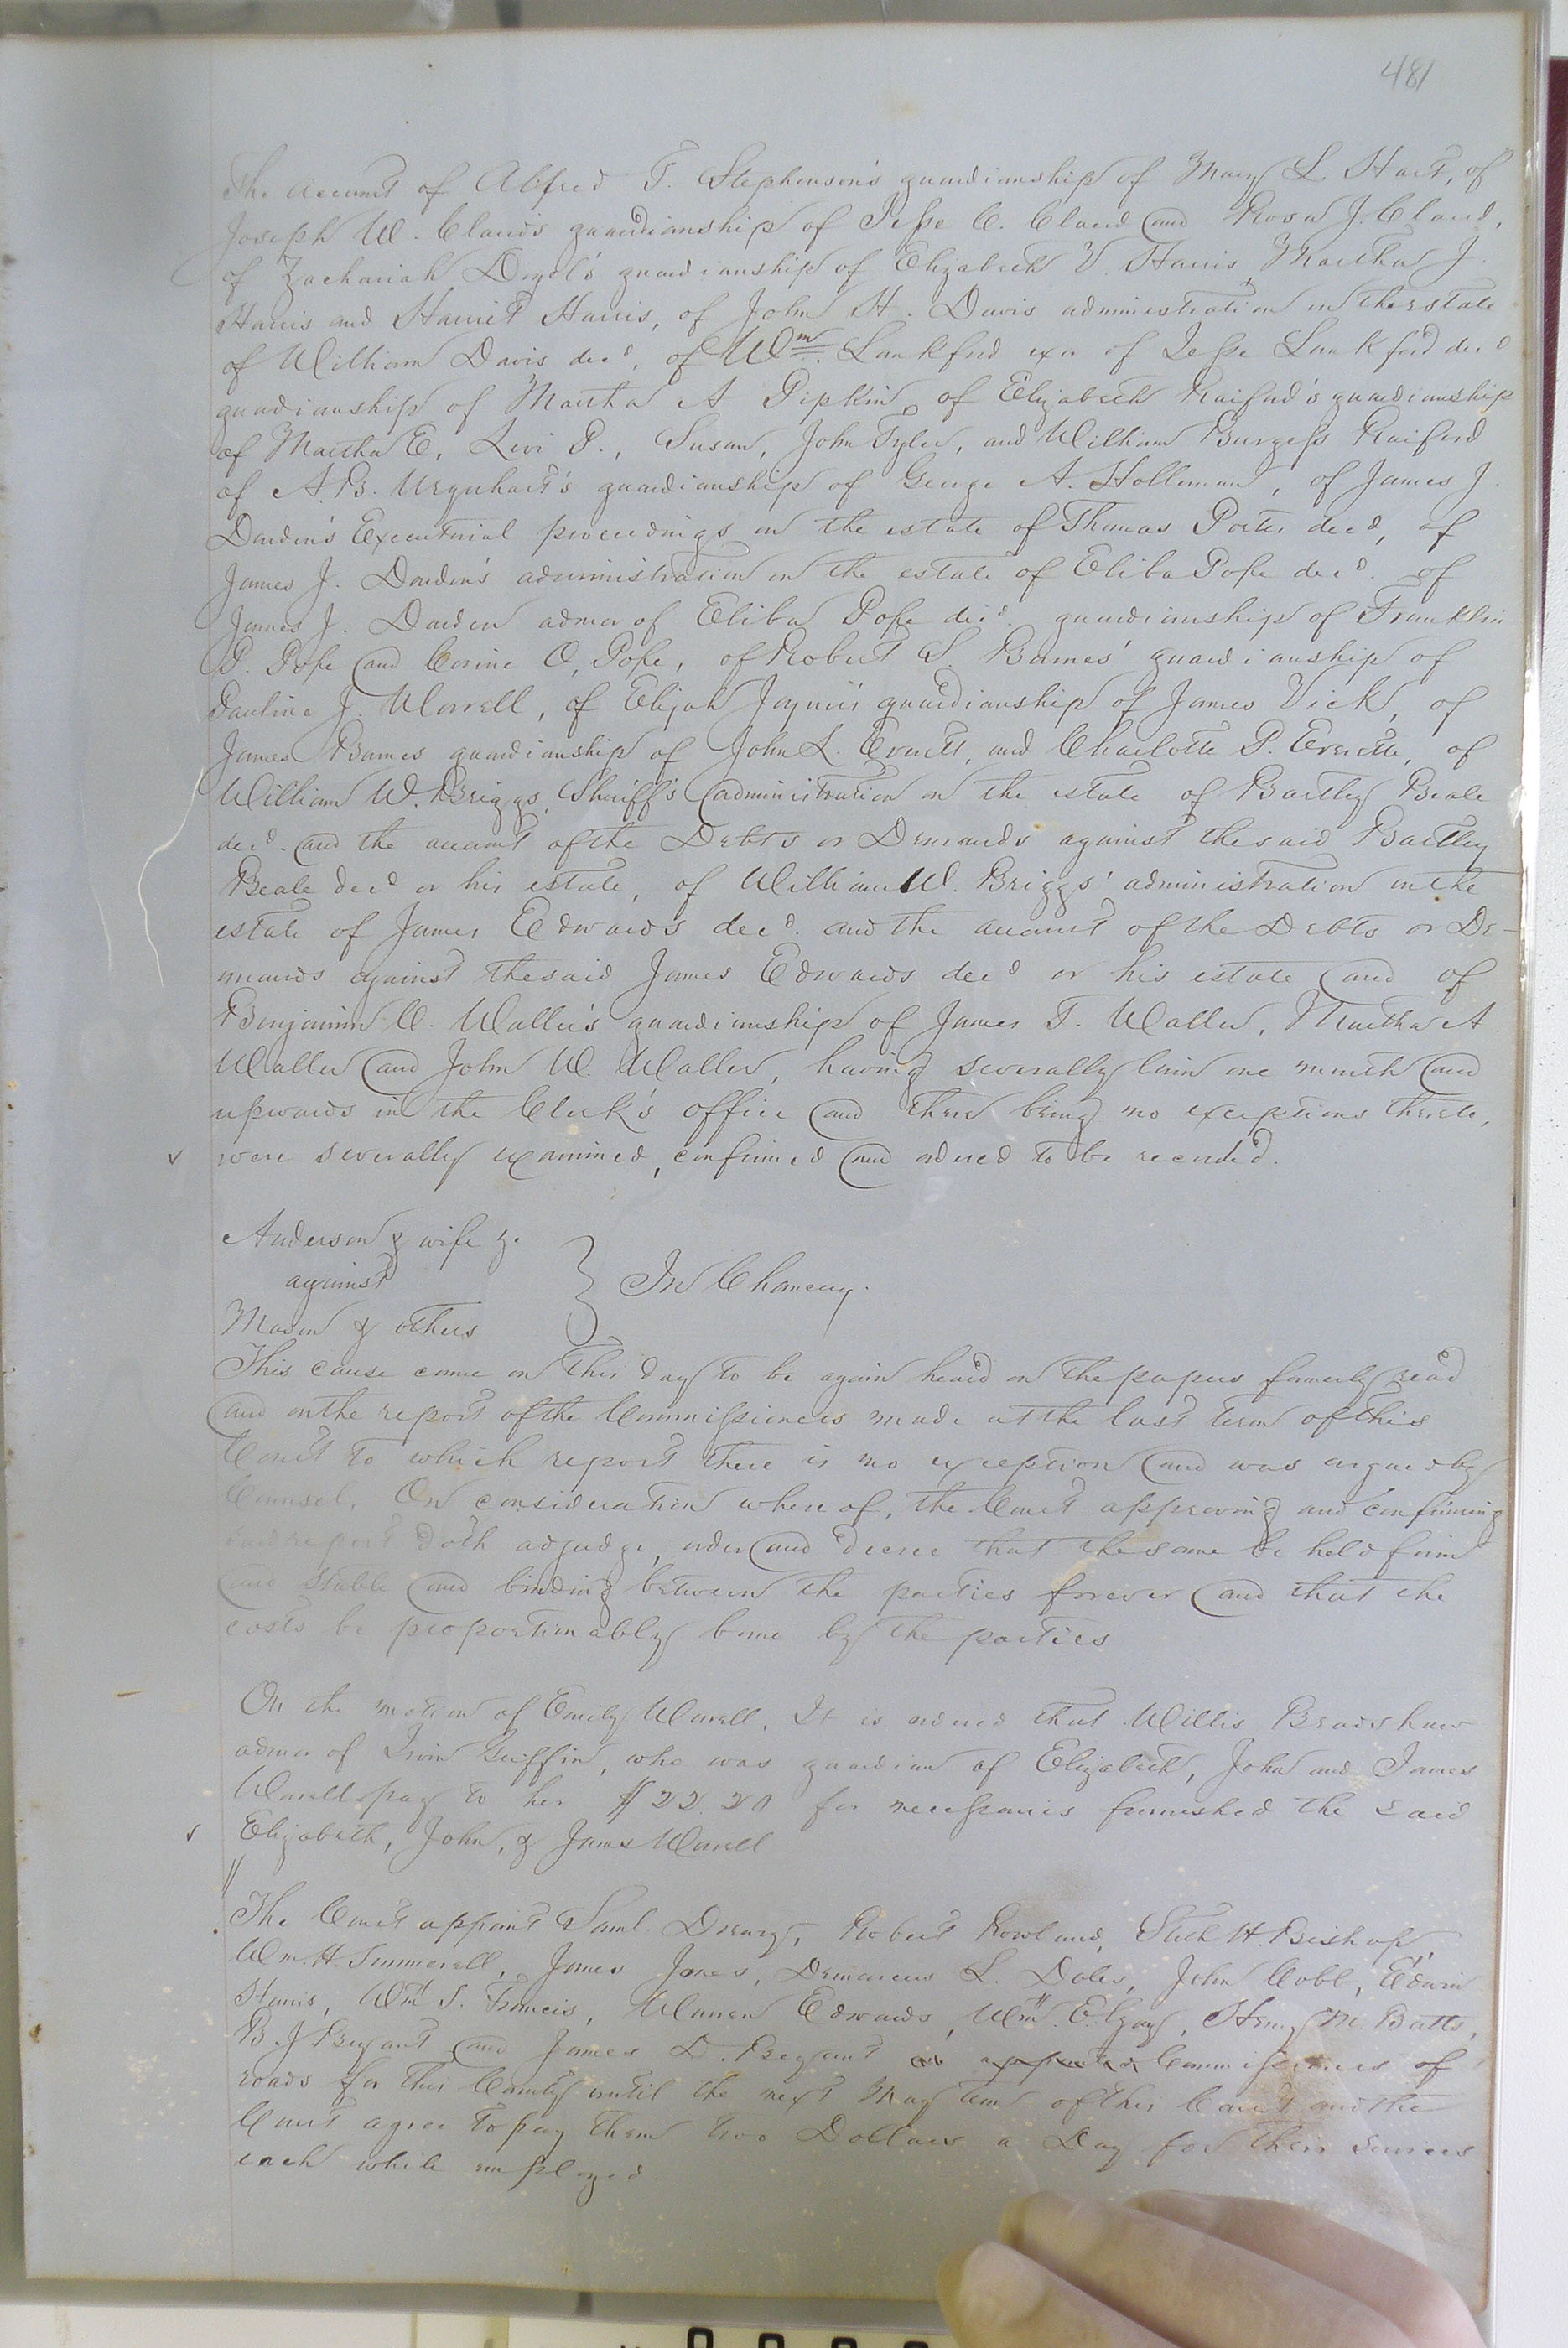 481
The account of Alfred T. Stephenson's guardianship of Mary L. Hart, of
Joseph W. Claud's guardianship of Jesse C. Claud and Rosa J. Claud,
of Zachariah Doyel's guardianship of Elizabeth V. Harris, Martha J.
Harris and Harriet Harris, of John H. Davis administration on the estate
of William Davis decd, of Wm. Lankford exor of Jesse Lankford decd
guardianship of Martha A Pipkin, of Elizabeth Raiford's guardianship
of Martha E, Levi P., Susan, John Tyler, and William Burgess Raiford
of A. B. Urquhart's guardianship of George A. Holleman, of James J.
Darden's Executorial proceedings on the estate of Thomas Porter decd, of
James J. Darden's administration on the estate of Eliba Pope decd. of
James J. Darden admor of Eliba Pope decd. guardianship of Franklin
P. Pope and Corine O. Pope, of Robert S. Barnes' guardianship of
Pauline J. Worrell, of Elijah Joyner's guardianship of James Vick, of
James Barnes guardianship of John L. Everett, and Charlotte P. Everette, of
William W. Briggs, Sheriff's administration on the estate of Bartley Beale
decd. and the account of the Debts or Demands against the said Bartley
Beale decd or his estate, of William W. Briggs' administration on the
estate of James Edwards decd. and the account of the Debts or De-
mands against the said James Edwards decd or his estate and of
Benjamin W. Waller's guardianship of James T. Waller, Martha A
Waller and John W. Waller, having severally lain one month and
upwards in the Clerk's office and there being no exceptions thereto,
v were severally examined, confirmed and ordered to be recorded.
Anderson & wife &c
against } In Chancery.
Mason & others
This cause came on this day to be again heard on the papers formerly read
and on the report of the Commissioners made at the last term of this
Court to which report there is no exception and was argued by
Counsel. On consideration whereof, the Court approving and confirming
said report doth adjudge, order and decree that the same be held firm
and stable and binding between the parties forever and that the
costs be proportionably borne by the parties
On the motion of Emily Worrell, It is ordered that Willis Bradshaw
admor of Irvin Griffin, who was guardian of Elizabeth, John and James
Worrell pay to her $22.20 for necessaries furnished the said
Elizabeth, John, & James Worrell
The Court appoint Saml. Drewry, Robert Rowland, Bishop,
Wm. H. Summerell, James Jones, Demarcus L. Doles, John Cobb, Edwin
Harris, Wm S. Francis, Warren Edwards, Wm. Elgay, Henry M. Batts,
B. J. Bryant and James D. Bryant as appointed Commissioners of
roads for this County until the next May term of this Court and the
Court agree to pay them two Dollars a Day for their services
each while employed.